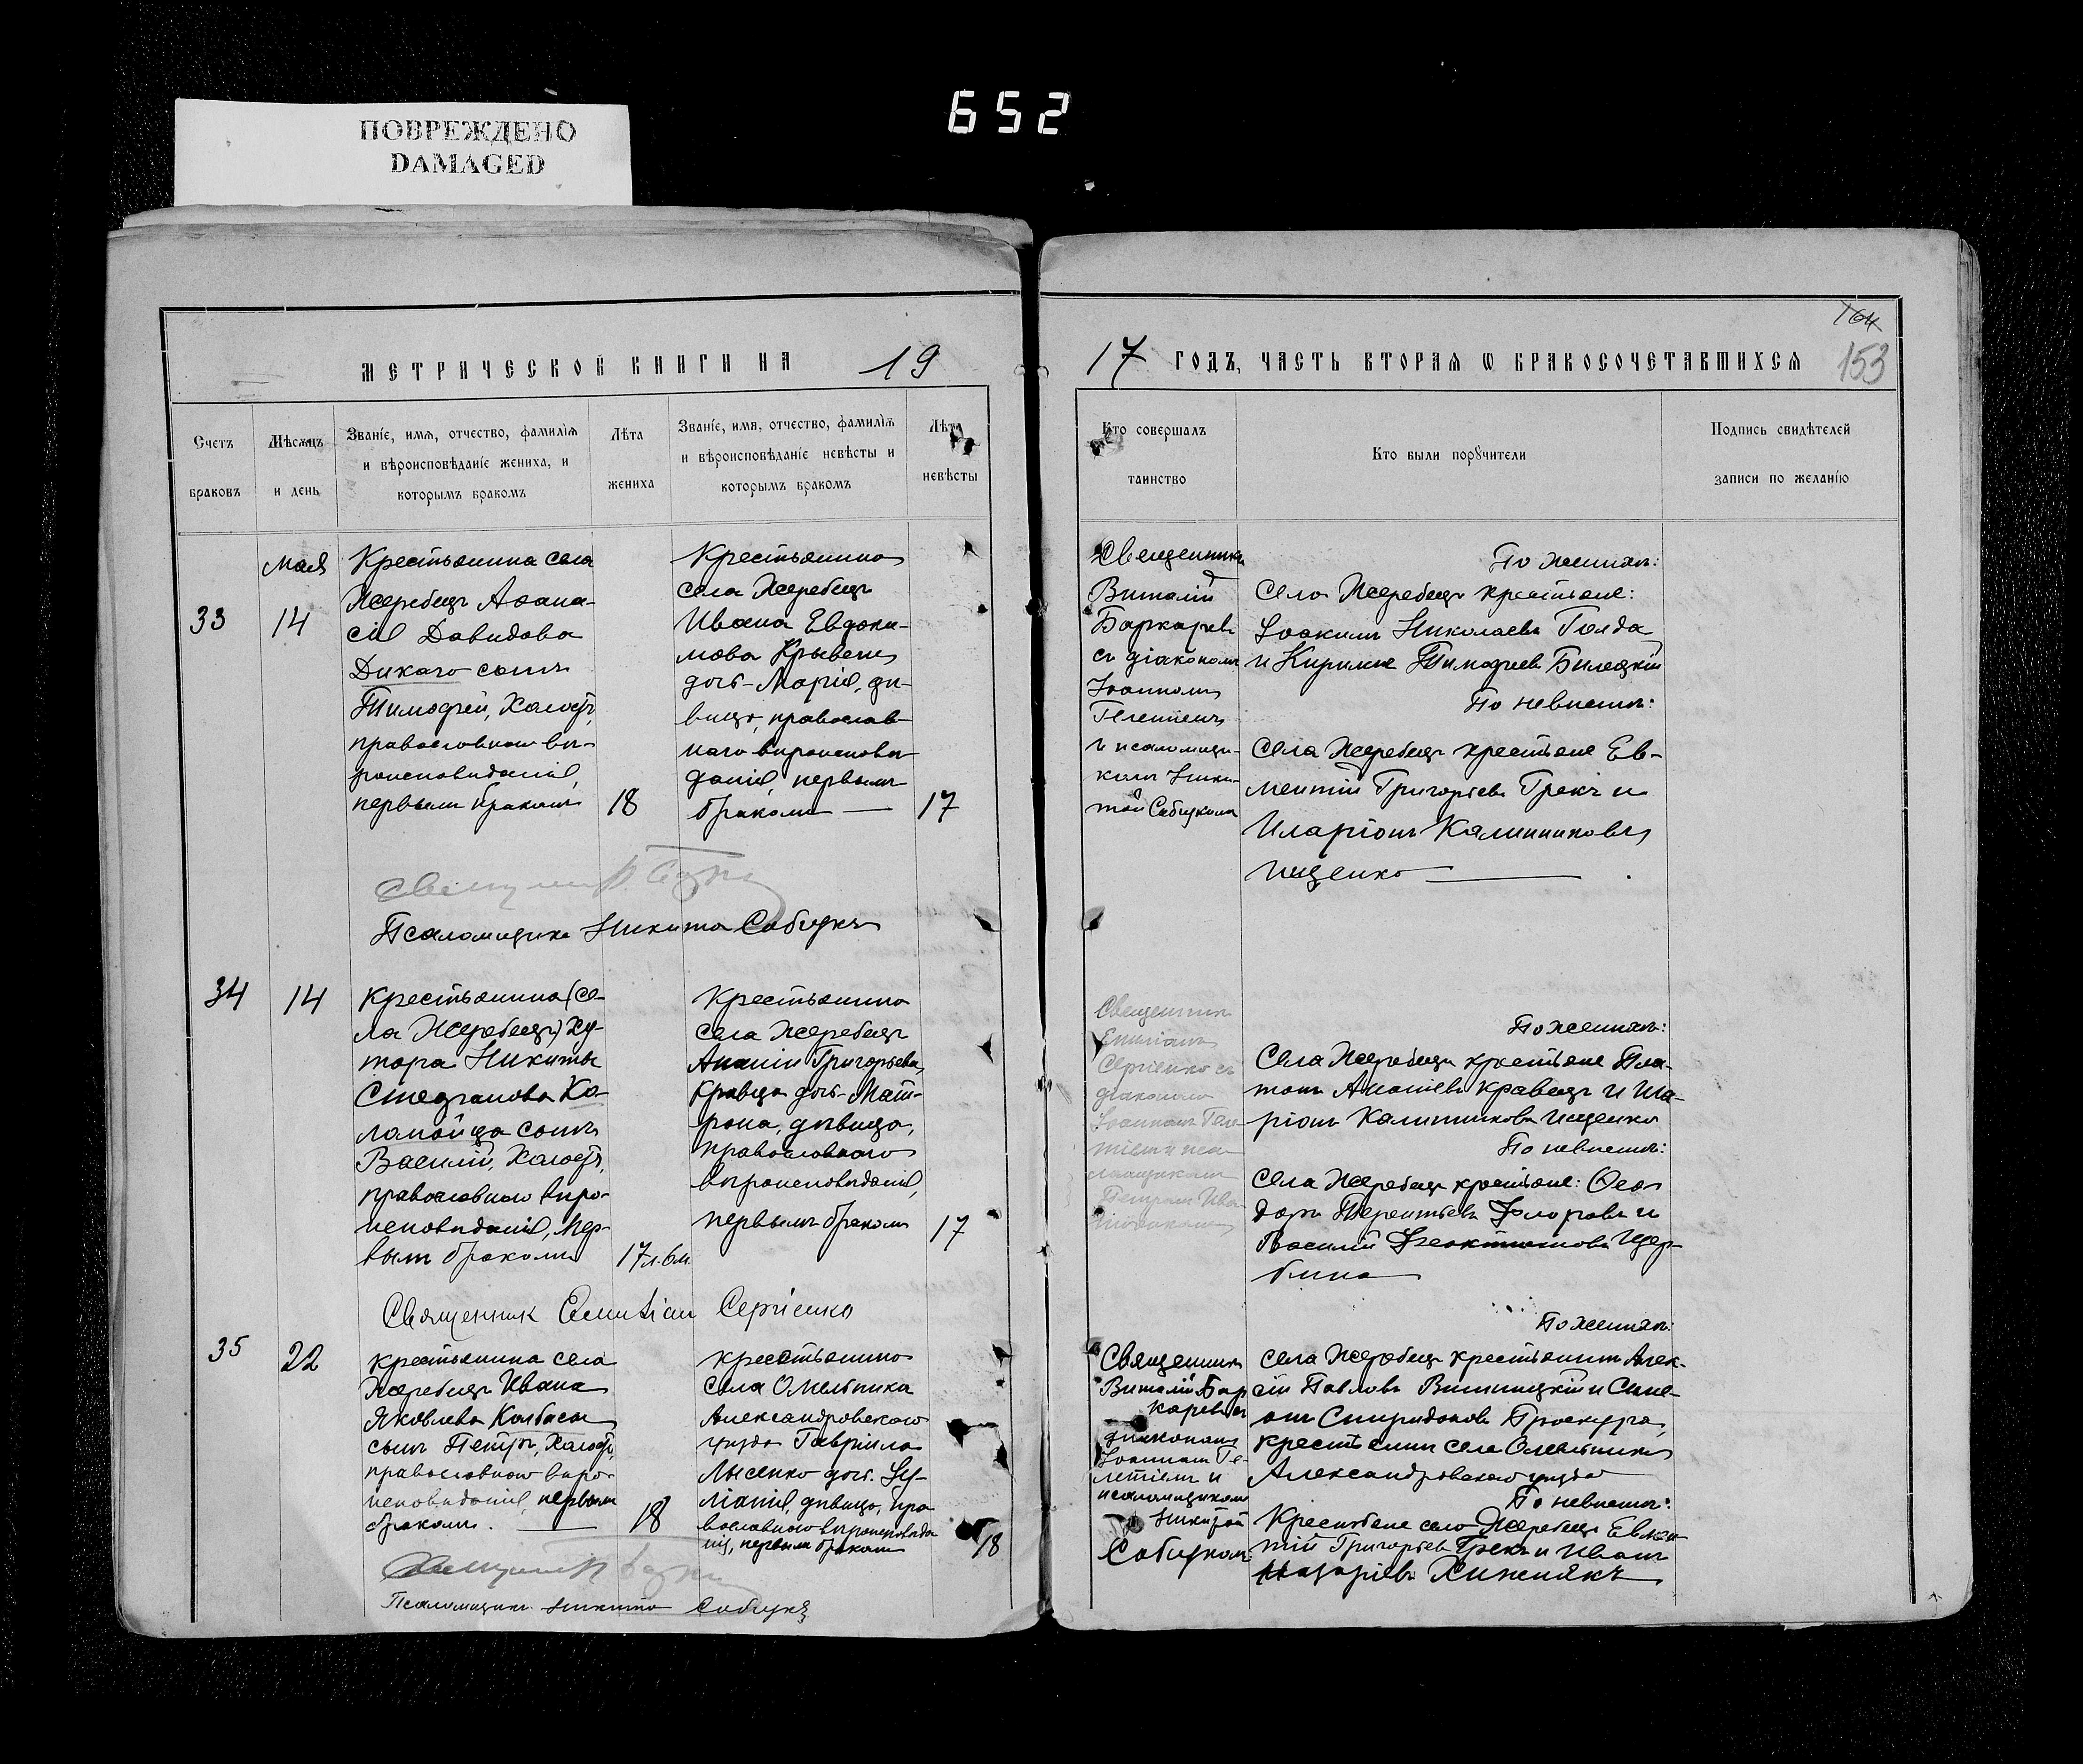 652
ПОВРЕЖДЕНО
DAMAGED
164
МЕТРИЧЕСКОЙ КНИГИ НА 19
17 ГОДЪ, ЧАСТЬ ВТОРАЯ Ѡ БРАКОСОЧЕТАВШИХСЯ
153
Счетъ браковъ
Мѣсяцъ и день
Званіе, имя, отчество, фамилія
и вѣроисповѣданіе жениха, и
которымъ бракомъ
Лѣта
жениха
Званіе, имя, отчество, фамилія
и вѣроисповѣданіе невѣсты и
которымъ бракомъ
Лѣта
невѣсты
Кто совершалъ
таинство
Кто были порꙋчители
Подпись свидѣтелей
записи по желанію
33
Мая
14
Крестьянина села
Жеребецъ Афана-
сія Давидова
Дикаго сынъ
Тимофей, холостъ,
православнаго вѣ-
роисповѣданія,
первымъ бракомъ
18
Крестьянина
села Жеребецъ
Ивана Евдоки-
мова Крывени
дочь - Марія, дѣ-
вица, православ-
наго вѣроисповѣ-
данія, первымъ
бракомъ
17
Священникъ
Виталій
Баржаревъ
съ діакономъ
Іоанномъ
и псаломщи-
комъ Ники-
той Сабуцкомъ
По женихѣ:
Села Жеребецъ крестьяне:
Іоакимъ Николаевъ Голда
и Кириллъ Тимофеевъ Билецкій
По невѣстѣ:
Села Жеребецъ крестьяне Ев-
ментій Григорьевъ Грекъ и
Иларіонъ Калинниковъ
Ищенко
Псаломщикъ Никита Сабуцкъ
34
14
Крестьянина (се-
ла Жеребецъ) ху-
тора Никиты
Стефанова Ко-
ломойца сынъ
Василій, холостъ,
православнаго вѣро-
исповѣданія, пер-
вымъ бракомъ
17 л. 6 м.
Крестьянина
села Жеребецъ
Ананіи Григорьева
Кравца дочь - Мат-
рона, дѣвица,
православнаго
вѣроисповѣданія,
первымъ бракомъ
17
Священникъ
Емиліанъ
Сергіенко съ
діакономъ
По женихѣ:
Села Жеребецъ крестьяне Пла-
тонъ Ананіевъ Кравецъ и Ила-
ріонъ Калинниковъ Ищенко
По невѣстѣ:
Села Жеребецъ крестьяне: Ѳео-
доръ Терентьевъ Флоровъ и
Василій Феоктистовъ Щер-
бина
Священник Емиліан Сергіенко
35
22
Крестьянина села
Жеребецъ Ивана
Яковлева Колбаса
сынъ Петръ, холостъ,
православнаго вѣро-
исповѣданія, первымъ
бракомъ.
18
Крестьянина
села Омельника
Александровскаго
уѣзда Гавріила
Лысенко дочь. Іу-
ліанія, дѣвица, пра-
вославнаго вѣроисповѣда-
нія, первымъ бракомъ
18
Священникъ
Виталій Бар
жаревъ съ
діакономъ
псаломщикомъ
Никитой
Сабуцкомъ
По женихѣ:
Села Жеребецъ крестьянинъ Алек-
сій Павловъ Вишницкій и Симе-
онъ Спиридоновъ Проскурра,
крестьянинъ села Омельника
Александровскаго уѣзда
По невѣстѣ:
Крестьяне села Жеребецъ Евмен-
тій Григорьевъ Грекъ и Иванъ
Назаріевъ Хижнякъ
Псаломщикъ Никита Сабуцкъ